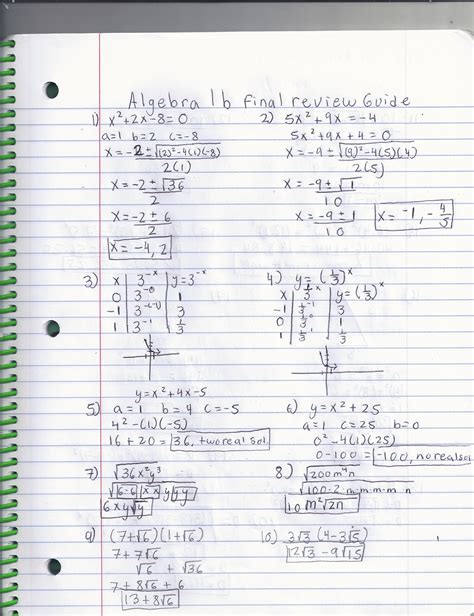 Algebra 1b final review Guide
1) x²+2x-8=0
a=1 b=2 c=-8
x=-2±√(2)²-4(1)(-8)
2(1)
x=-2±√36
2
x=-2±6
2
x=-4,2
2) 5x²+9x=-4
5x²+9x+4=0
x=-9±√(9)²-4(5)(4)
2(5)
x=-9±√1
10
x=-9±1
10
x=-1,-4/5
3) x | 3⁻ˣ | y=3⁻ˣ
0 | 3⁻⁰ | 1
-1 | 3⁻⁽⁻¹⁾ | 3
1 | 3⁻¹ | 1/3
4) y=(1/3)ˣ
x | 1/3ˣ | y=(1/3)ˣ
-1 | 1/3⁻¹ | 3
0 | 1/3⁰ | 1
1 | 1/3¹ | 1/3
y=x²+4x-5
5) a=1 b=4 c=-5
4²-(1)(-5)
16+20=36, two real sol.
6) y=x²+25
a=1 c=25 b=0
0²-4(1)(25)
0-100=-100, no real sol.
7) √36x²y³
√6·6 x x y y y
6xy√y
8) √200m⁴n
√100·2·m·m·m·m·n
10m²√2n
9) (7+√6)(1+√6)
7+7√6
√6+√36
7+8√6+6
13+8√6
10) 3√3(4-3√5)
12√3-9√15